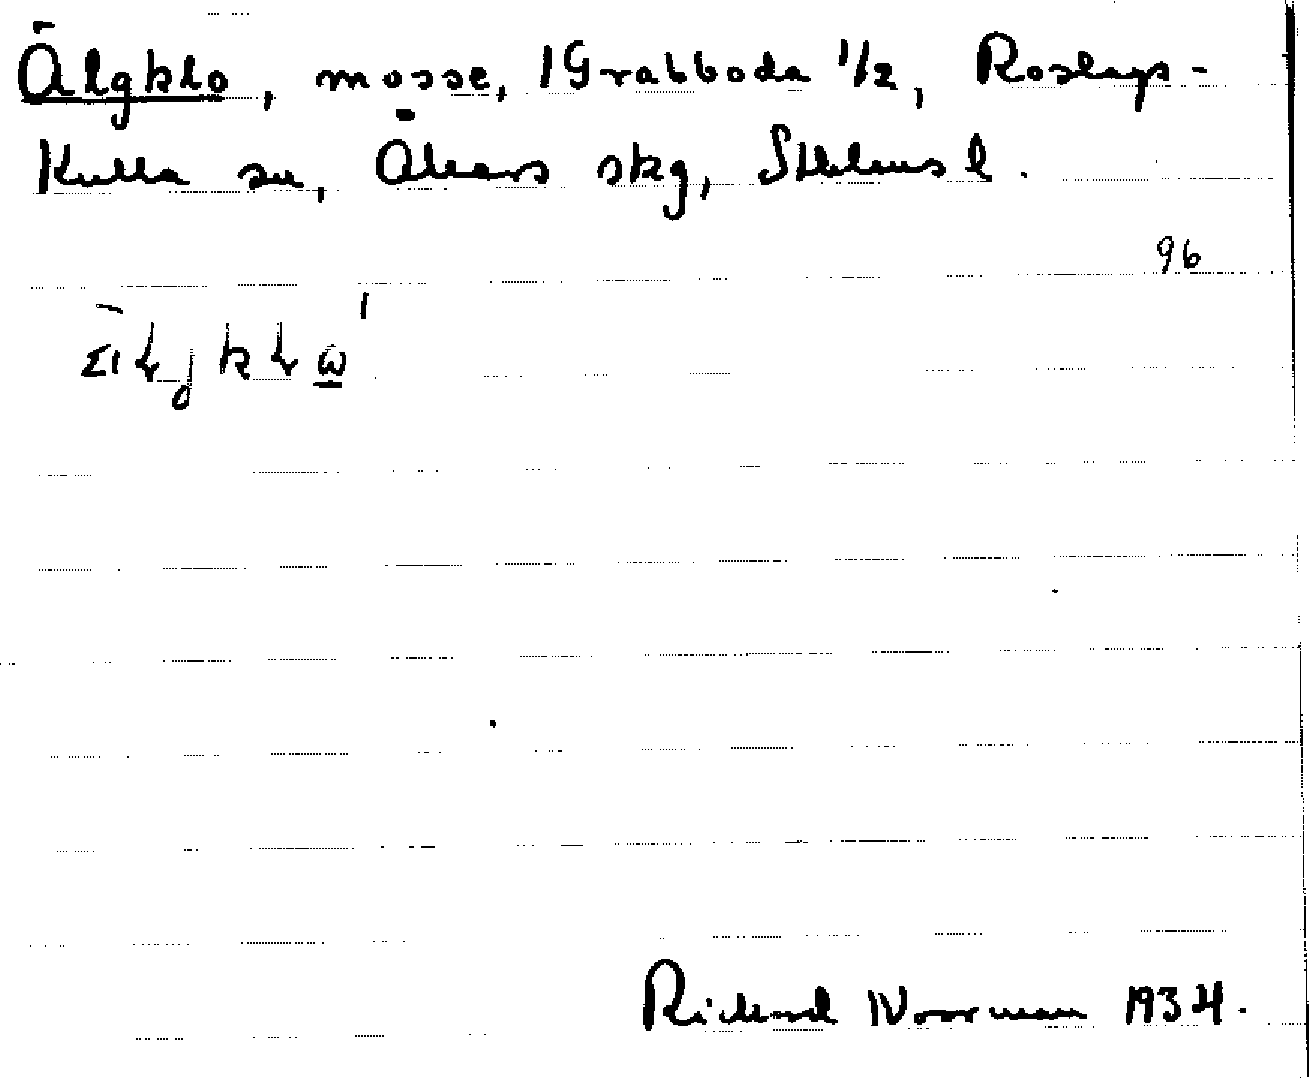 Älgklo, mosse, 1 Grabboda 1/2, Roslags-
Kulla sn, Åkers skg, Sthlms l.
96
Richard Norrman 1934.